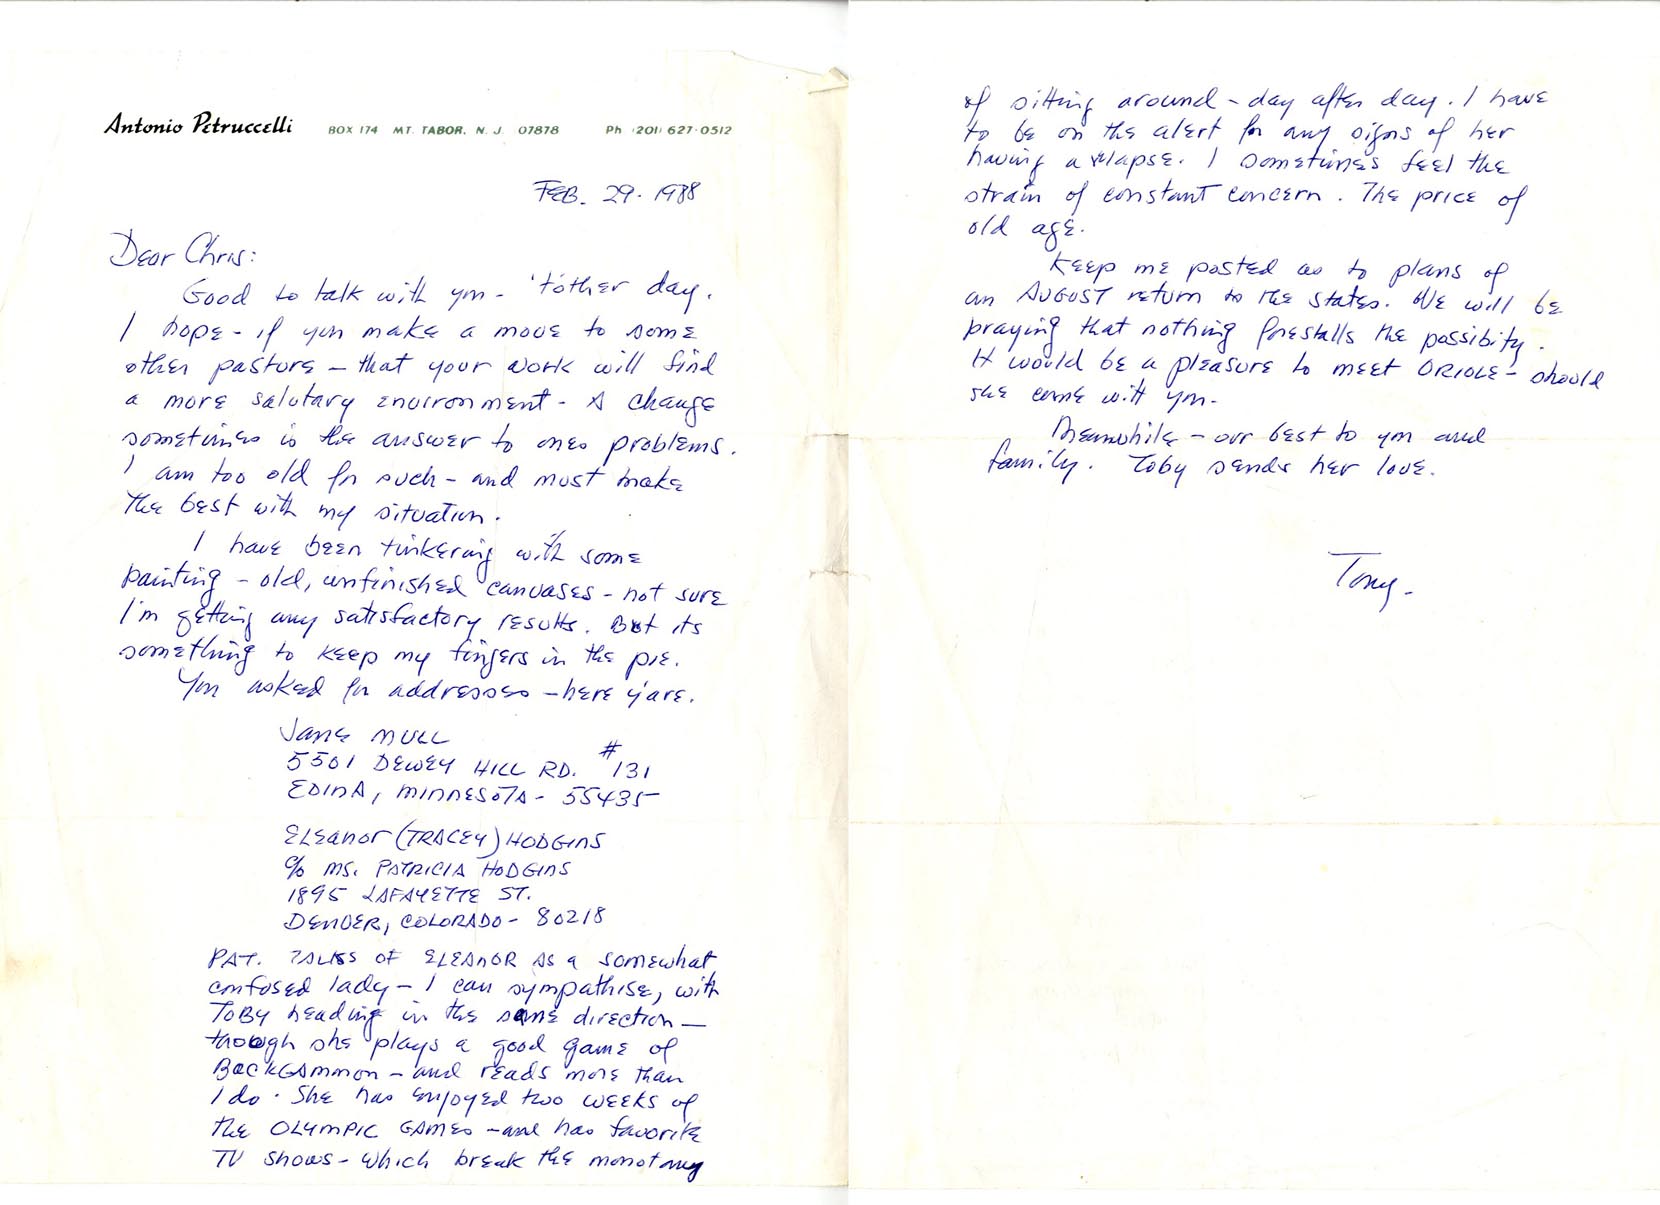 Antonio Petruccelli BOX 174 MT. TABOR, N. J. 07878 Ph (201) 627-0512
FEB. 29. 1988
Dear Chris:
Good to talk with you - 'tother day.
I hope - if you make a move to some
other pasture - that your work will find
a more salutary environment - A change
sometimes is the answer to ones problems.
I am too old for such - and must make
the best with my situation.
I have been tinkering with some
painting - old, unfinished canvases - not sure
I'm getting any satisfactory results. But its
something to keep my fingers in the pie.
You asked for addresses - here y'are.
Jane MULL
5501 DEWEY HILL RD. #131
EDINA, MINNESOTA - 55435
ELEanor (TRACEY) HODGINS
c/o MS. PATRICIA HODGINS
1895 LAFAYETTE ST.
DENVER, COLORADO - 80218
PAT. TALKS OF ELEANOR AS a somewhat
confused lady - I can sympathise, with
TOBY heading in the same direction -
though she plays a good game of
BackGammon - and reads more than
I do. She has enjoyed two weeks of
the OLYMPIC GAMES - and has favorite
TV shows - which break the monotony
of sitting around - day after day. I have
to be on the alert for any signs of her
having a relapse. I sometimes feel the
strain of constant concern. The price of
old age.
Keep me posted as to plans of
an AUGUST return to the states. We will be
praying that nothing forestalls the possibity.
It would be a pleasure to meet ORIOLE - should
she come with you.
Meanwhile - our best to you and
family. Toby sends her love.
Tony.